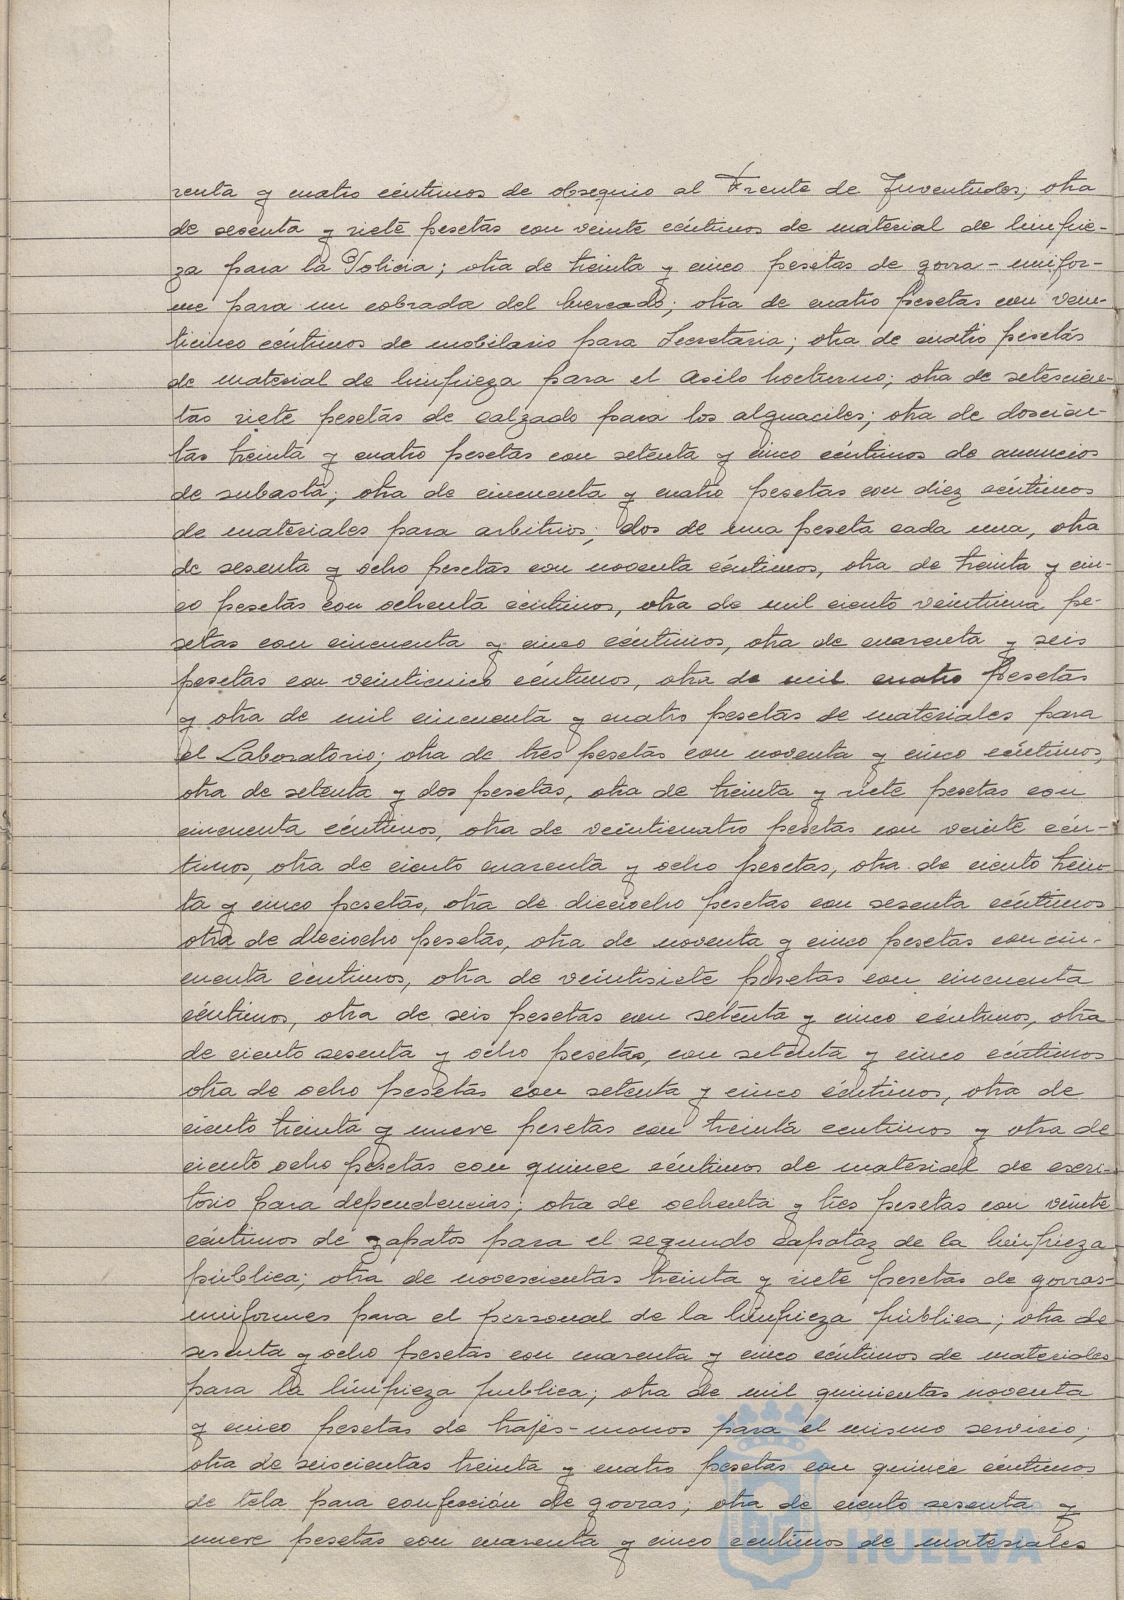 renta y cuatro céntimos de obsequio al Frente de Juventudes; otra
de sesenta y siete pesetas con veinte céntimos de material de limpie-
za para la Policia; otra de treinta y cinco pesetas de gorra-unifor-
me para un cobrada del Mercado; otra de cuatro pesetas con vein-
ticinco céntimos de mobilario para Secretaria; otra de cuatro pesetas
de material de limpieza para el Asilo nocturno; otra de setescien-
tas siete pesetas de calzado para los alguaciles; otra de doscien-
tas treinta y cuatro pesetas con setenta y cinco céntimos de anuncios
de subasta; otra de cincuenta y cuatro pesetas con diez céntimos
de materiales para arbitrios; dos de una peseta cada una, otra
de sesenta y ocho pesetas con noventa céntimos, otra de treinta y cin-
co pesetas con ochenta céntimos, otra de mil ciento veintiuna pe-
setas con cincuenta y cinco céntimos, otra de cuarenta y seis
pesetas con veinticinco céntimos, otra de mil cuatro pesetas
y otra de mil cincuenta y cuatro pesetas de materiales para
el Laboratorio; otra de tres pesetas con noventa y cinco céntimos,
otra de setenta y dos pesetas, otra de treinta y siete pesetas con
cincuenta céntimos, otra de veinticuatro pesetas con veinte cén-
timos, otra de ciento cuarenta y ocho pesetas, otra de ciento trein-
ta y cinco pesetas, otra de dieciocho pesetas con sesenta céntimos
otra de dieciocho pesetas, otra de noventa y cinco pesetas con cin-
cuenta céntimos, otra de veintisiete pesetas con cincuenta
céntimos, otra de seis pesetas con setenta y cinco céntimos, otra
de ciento sesenta y ocho pesetas, con setenta y cinco céntimos
otra de ocho pesetas con setenta y cinco céntimos, otra de
ciento treinta y nueve pesetas con treinta centimos y otra de
ciento ocho pesetas con quince céntimos de material de escri-
torio para dependencias; otra de ochenta y tres pesetas con veinte
céntimos de zapatos para el segundo capataz de la limpieza
pública; otra de novescientas treinta y siete pesetas de gorras-
uniformes para el personal de la limpieza pública; otra de
sesenta y ocho pesetas con cuarenta y cinco céntimos de materiales
para la limpieza publica; otra de mil quinientas noventa
y cinco pesetas de trajes-monos para el mismo servicio;
otra de seiscientas treinta y cuatro pesetas con quince céntimos
de tela para confección de gorras; otra de ciento sesenta y
nueve pesetas con cuarenta y cinco centimos de materiales
Ayuntamiento de
HUELVA